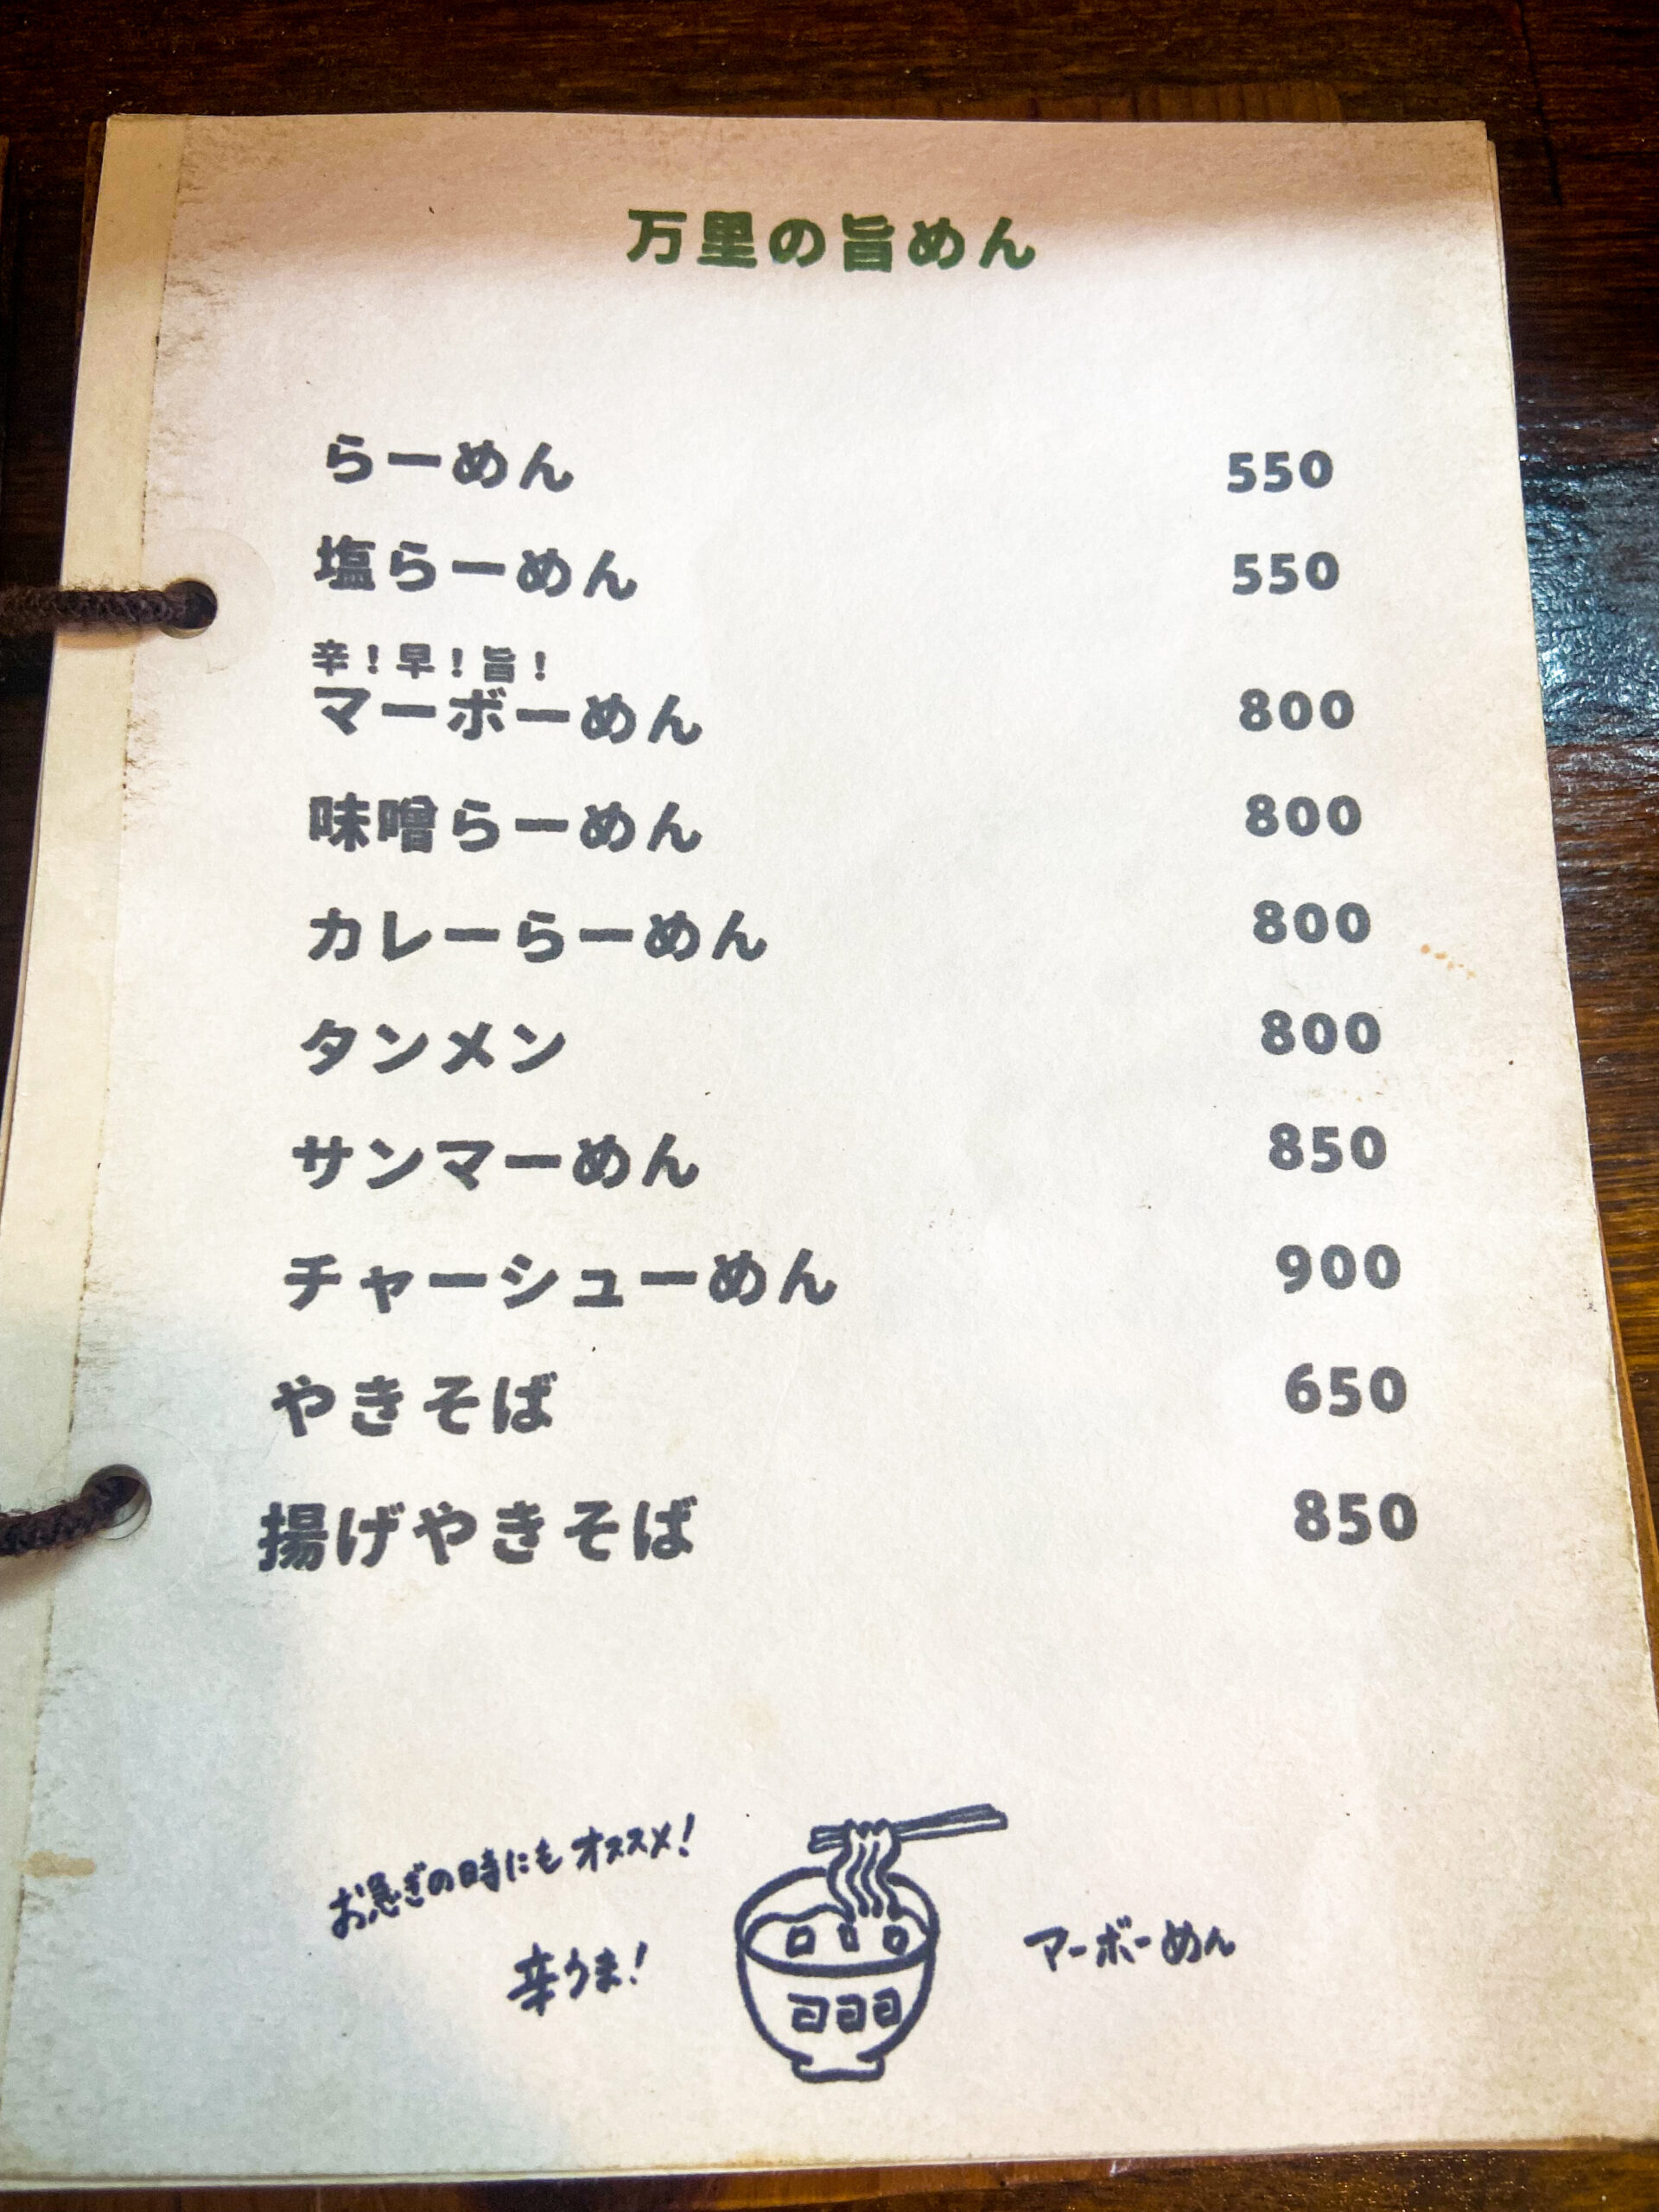 万里の旨めん
らーめん 550
塩らーめん 550
辛！早！旨！
マーボーめん 800
味噌らーめん 800
カレーらーめん 800
タンメン 800
サンマーめん 850
チャーシューめん 900
やきそば 650
揚げやきそば 850
お急ぎの時にもオススメ！
辛うま！
マーボーめん